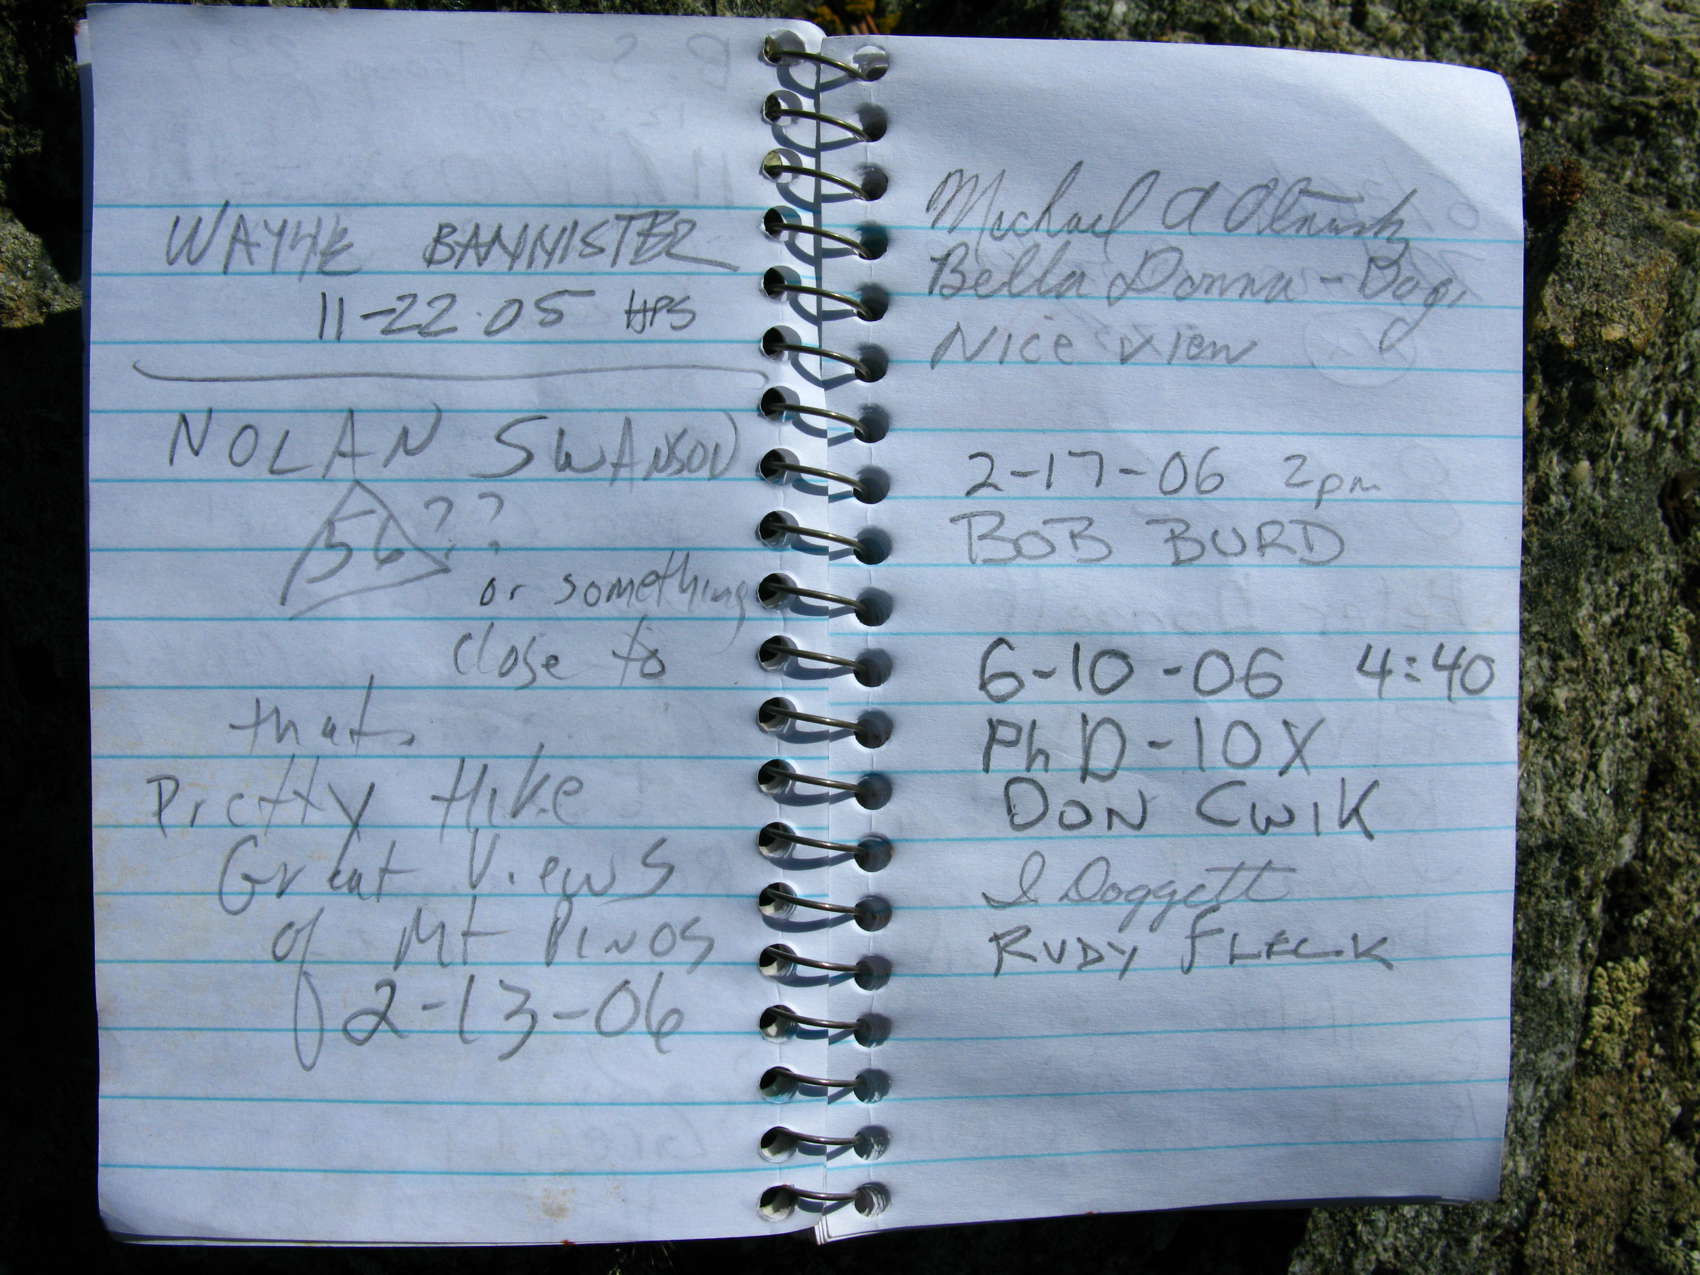 WAYNE BANNISTER
11-22-05 HPS
NOLAN SWANSON
56??
or something
close to
that.
Pretty Hike
Great Views
of Mt Pinos
2-13-06
Michael A
Bella Donna - Dog
Nice view
2-17-06 2pm
BOB BURD
6-10-06 4:40
PhD-10X
DON CWIK
Doggett
RUDY FLECK